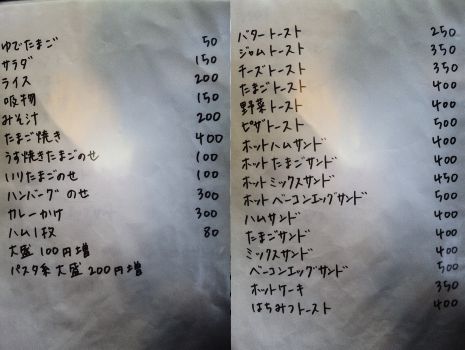 ゆでたまご 50
サラダ 150
ライス 200
吸物 150
みそ汁 200
たまご焼き 400
うす焼きたまごのせ 100
いりたまごのせ 100
ハンバーグ のせ 300
カレーかけ 300
ハム1枚 80
大盛 100円増
パスタ系 大盛 200円増
バタートースト 250
ジャムトースト 350
チーズトースト 350
たまごトースト 400
野菜トースト 400
ピザトースト 500
ホットハムサンド 400
ホットたまごサンド 400
ホットミックスサンド 450
ホットベーコンエッグサンド 500
ハムサンド 400
たまごサンド 400
ミックスサンド 400
ベーコンエッグサンド 500
ホットケーキ 350
はちみつトースト 400